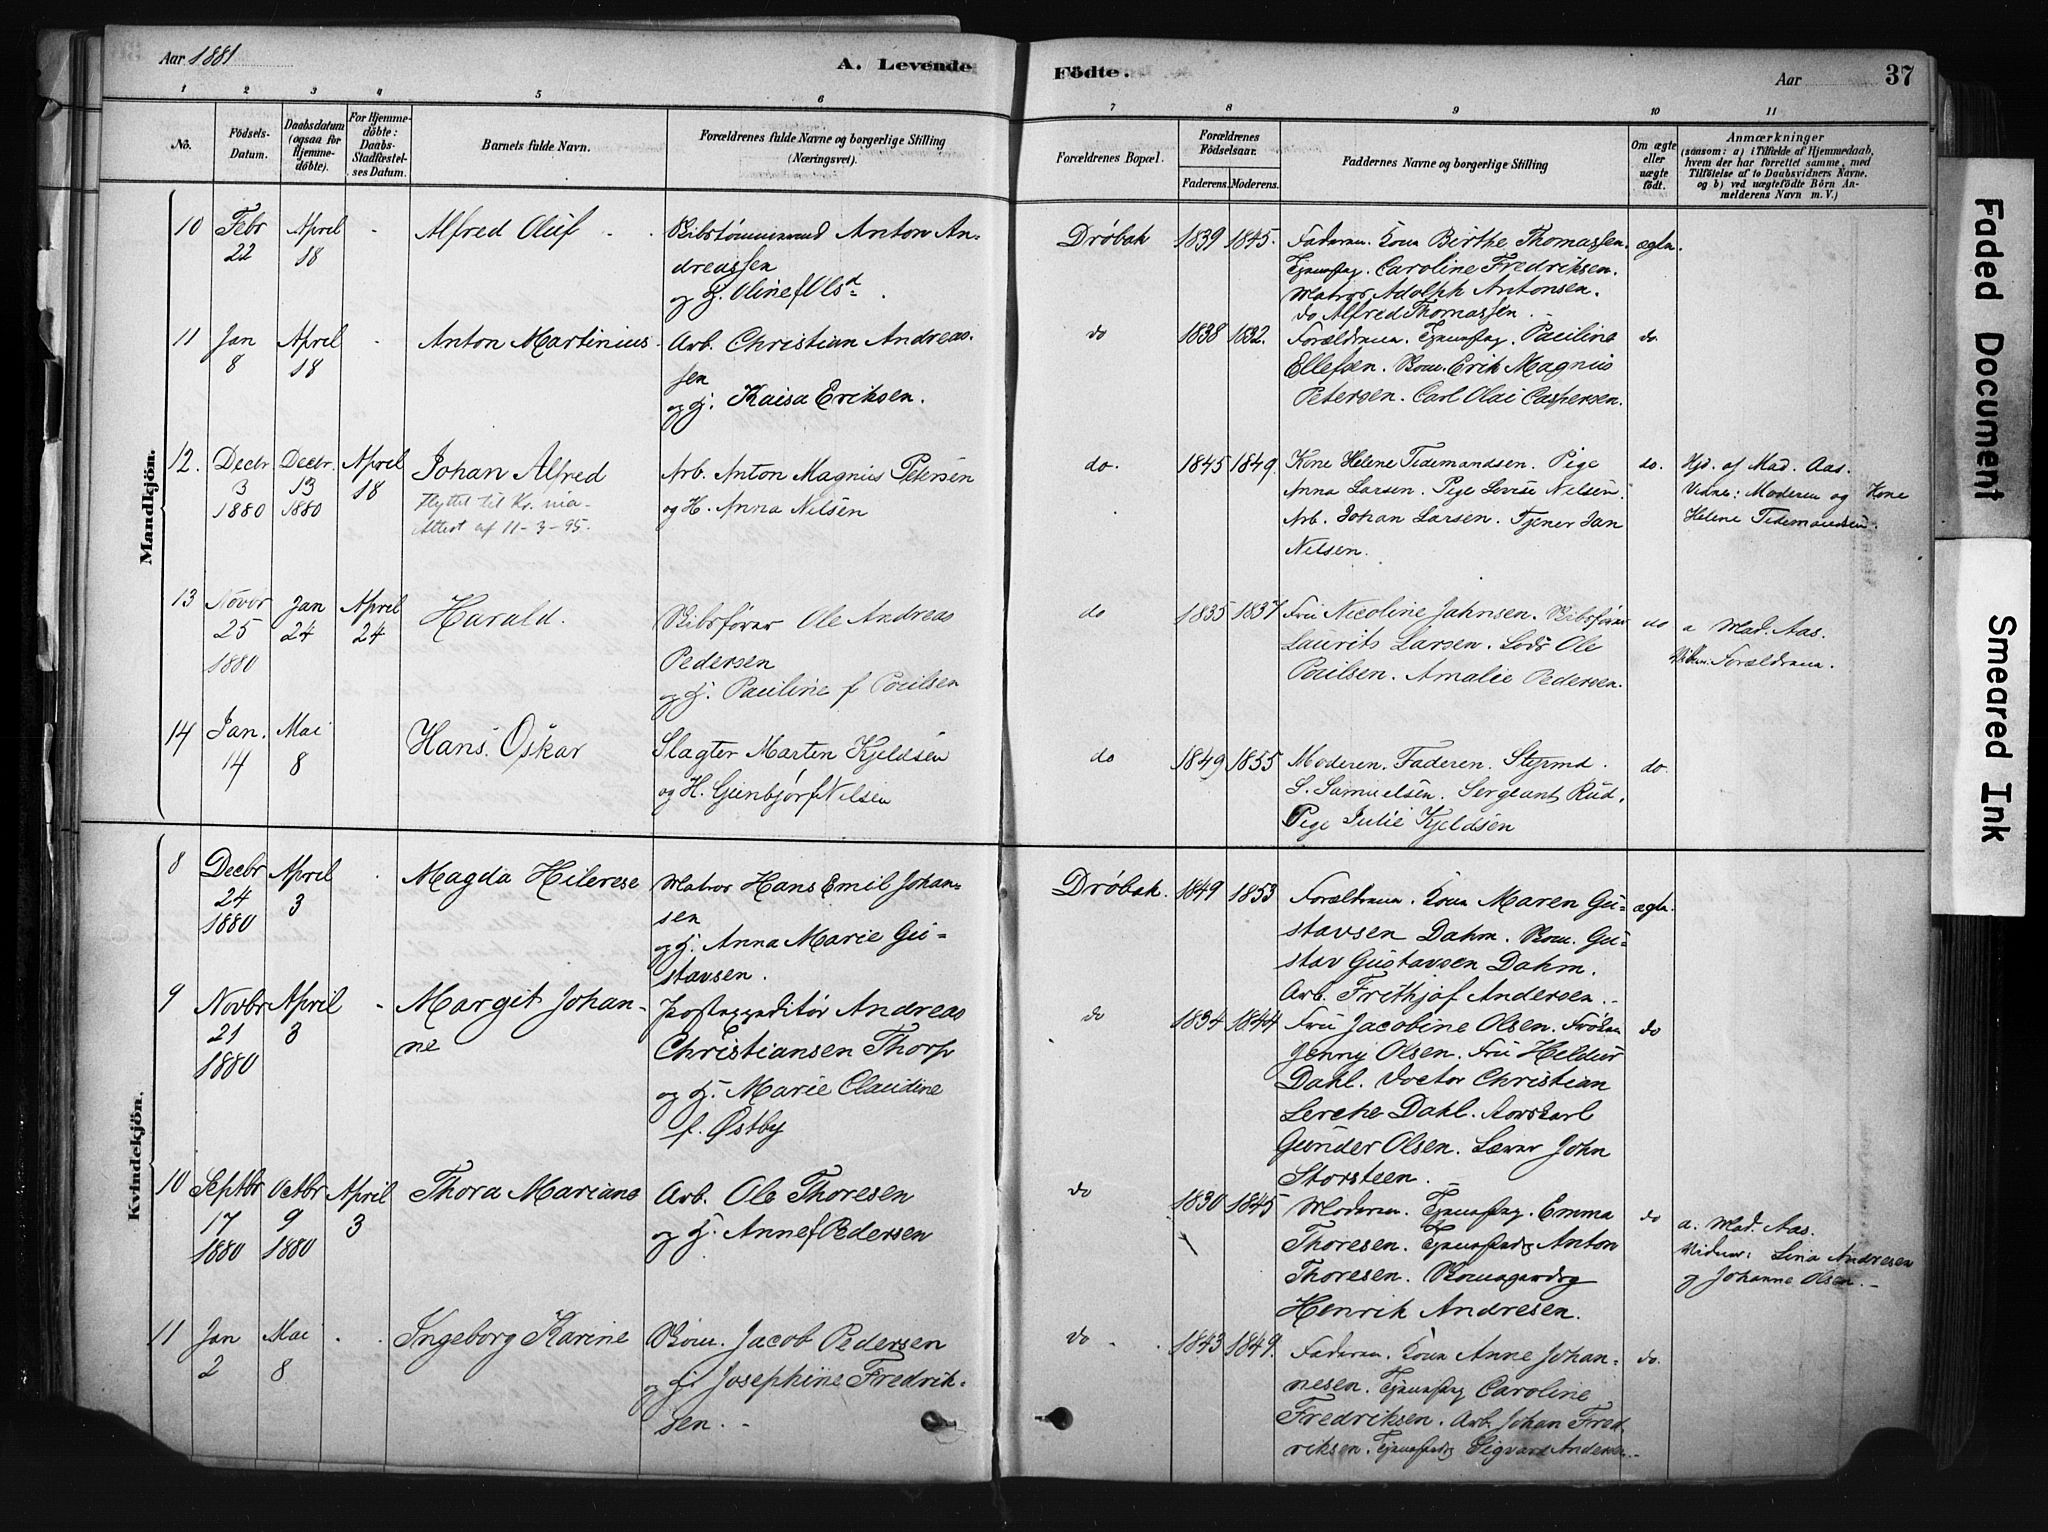 Aar 1881
A. Levende Födte.
Aar
37
1 2 3 4 5 6 7 8 9 10 11
No.
Födsels-Datum.
Daabsdatum (ogsaa for Hjemmedöbte).
For Hjemmedöbte: Daabs-Stadfæstelses Datum.
Barnets fulde Navn.
Forældrenes fulde Navne og borgerlige Stilling (Næringsvei).
Forældrenes Bopæl.
Forældrenes Födselsaar.
Faderens. Moderens.
Faddernes Navne og borgerlige Stilling
Om ægte eller uægte födt.
Anmærkninger
(saasom: a) i Tilfælde af Hjemmedaab,
hvem der har forrettet samme, med
Tilföielse af to Daabsvidners Navne.
og b) ved uægtefödte Börn Anmelderens Navn m. V.)
Mandkjön.
10 Febr 22 April 18 - Alfred Oluf
Anton Andreassen
og H. Oline f Olsd
Dröbak 1839 1845.
Faderen. Kona Birthe Thomassen.
Caroline Fredriksen.
Matros Adolph Antonsen.
do Alfred Thomassen.
ægte.
11 Jan 8 April 18 - Anton Martinius
Arb. Christian Andreassen
og H. Kaisa Eriksen.
do 1838 1832.
Forældrene. Pauline
Ellefsen. Erik Magnus
Petersen. Carl Olai Caspersen.
do.
12. Decbr 3 1880 Decbr. 13 1880 April 18 Johan Alfred
Flyttet til Kr.nia
Attest af 11-3-95.
Arb. Anton Magnus Petersen
og H. Anna Nilsen
do. 1845 1849
Kone Helene Tidemandsen. Pige
Anna Larsen. Pige Lovise Nilsen.
Arb. Johan Larsen. Tjener Jan
Nilsen.
do.
Hjd. af Mad. Aas.
Vidne: Moderen og Kone
Helene Tidemandsen.
13 Novbr 25 1880 Jan 24 April 24 Harald.
Ole Andreas
Pedersen
og H. Pauline f Poulsen
do 1835 1837
Fru Nicoline Jahnsen.
Laurits Larsen. Lods Ole
Paulsen. Amalie Pedersen.
do
a Mad. Aas.
Vidne. Forældrene.
14 Jan. 14 Mai 8 Hans Oskar
Slagter Marten Kjeldsen
og H. Gunbjør f Nilsen
do 1849 1855
Moderen. Faderen. Styrmd.
S. Samuelsen. Sergeant Rud.
Pige Julie Kjeldsen
do.
Kvindekjön.
8 Decbr 24 1880 April 3 - Magda Hilerese
Matros Hans Emil Johansen
og H. Anna Marie Gustavsen.
Dröbak. 1849 1853
Forældrene. Kona Maren Gustavsen
Dahm. Gustav
Gustavsen Dahm.
Arb. Frithjof Andersen.
ægte.
9 Novbr 21 1880 April 3 - Margit Johanne
Postexpeditør Andreas
Christiansen Thorp
og H. Marie Claudine
f. Østby
do 1834 1844
Fru Jacobine Olsen. Frøken
Jenny Olsen. Fru Hildur
Dahl. Doctor Christian
Lerche Dahl.
Gunder Olsen. Lærer John
Storsteen.
do
10 Septbr 17 1880 Octbr 9 1880 April 3 Thora Mariane
Arb. Ole Thoresen
og H. Anne f Pedersen
do 1830 1845
Moderen. Emma
Thoresen. Anton
Thoresen.
Henrik Andresen.
do
a. Mad. Aas.
Vidner: Lina Andresen
og Johanne Olsen. -
11 Jan 2 Mai 8 - - Ingeborg Karine
Jacob Pedersen
og H. Josephine Fredriksen. -
do 1843 1849.
Faderen. Kona Anne Johannesen.
Caroline
Fredriksen. Arb. Johan Fredriksen.
Sigvard Andersen.
do.
Faded Document
Smeared Ink